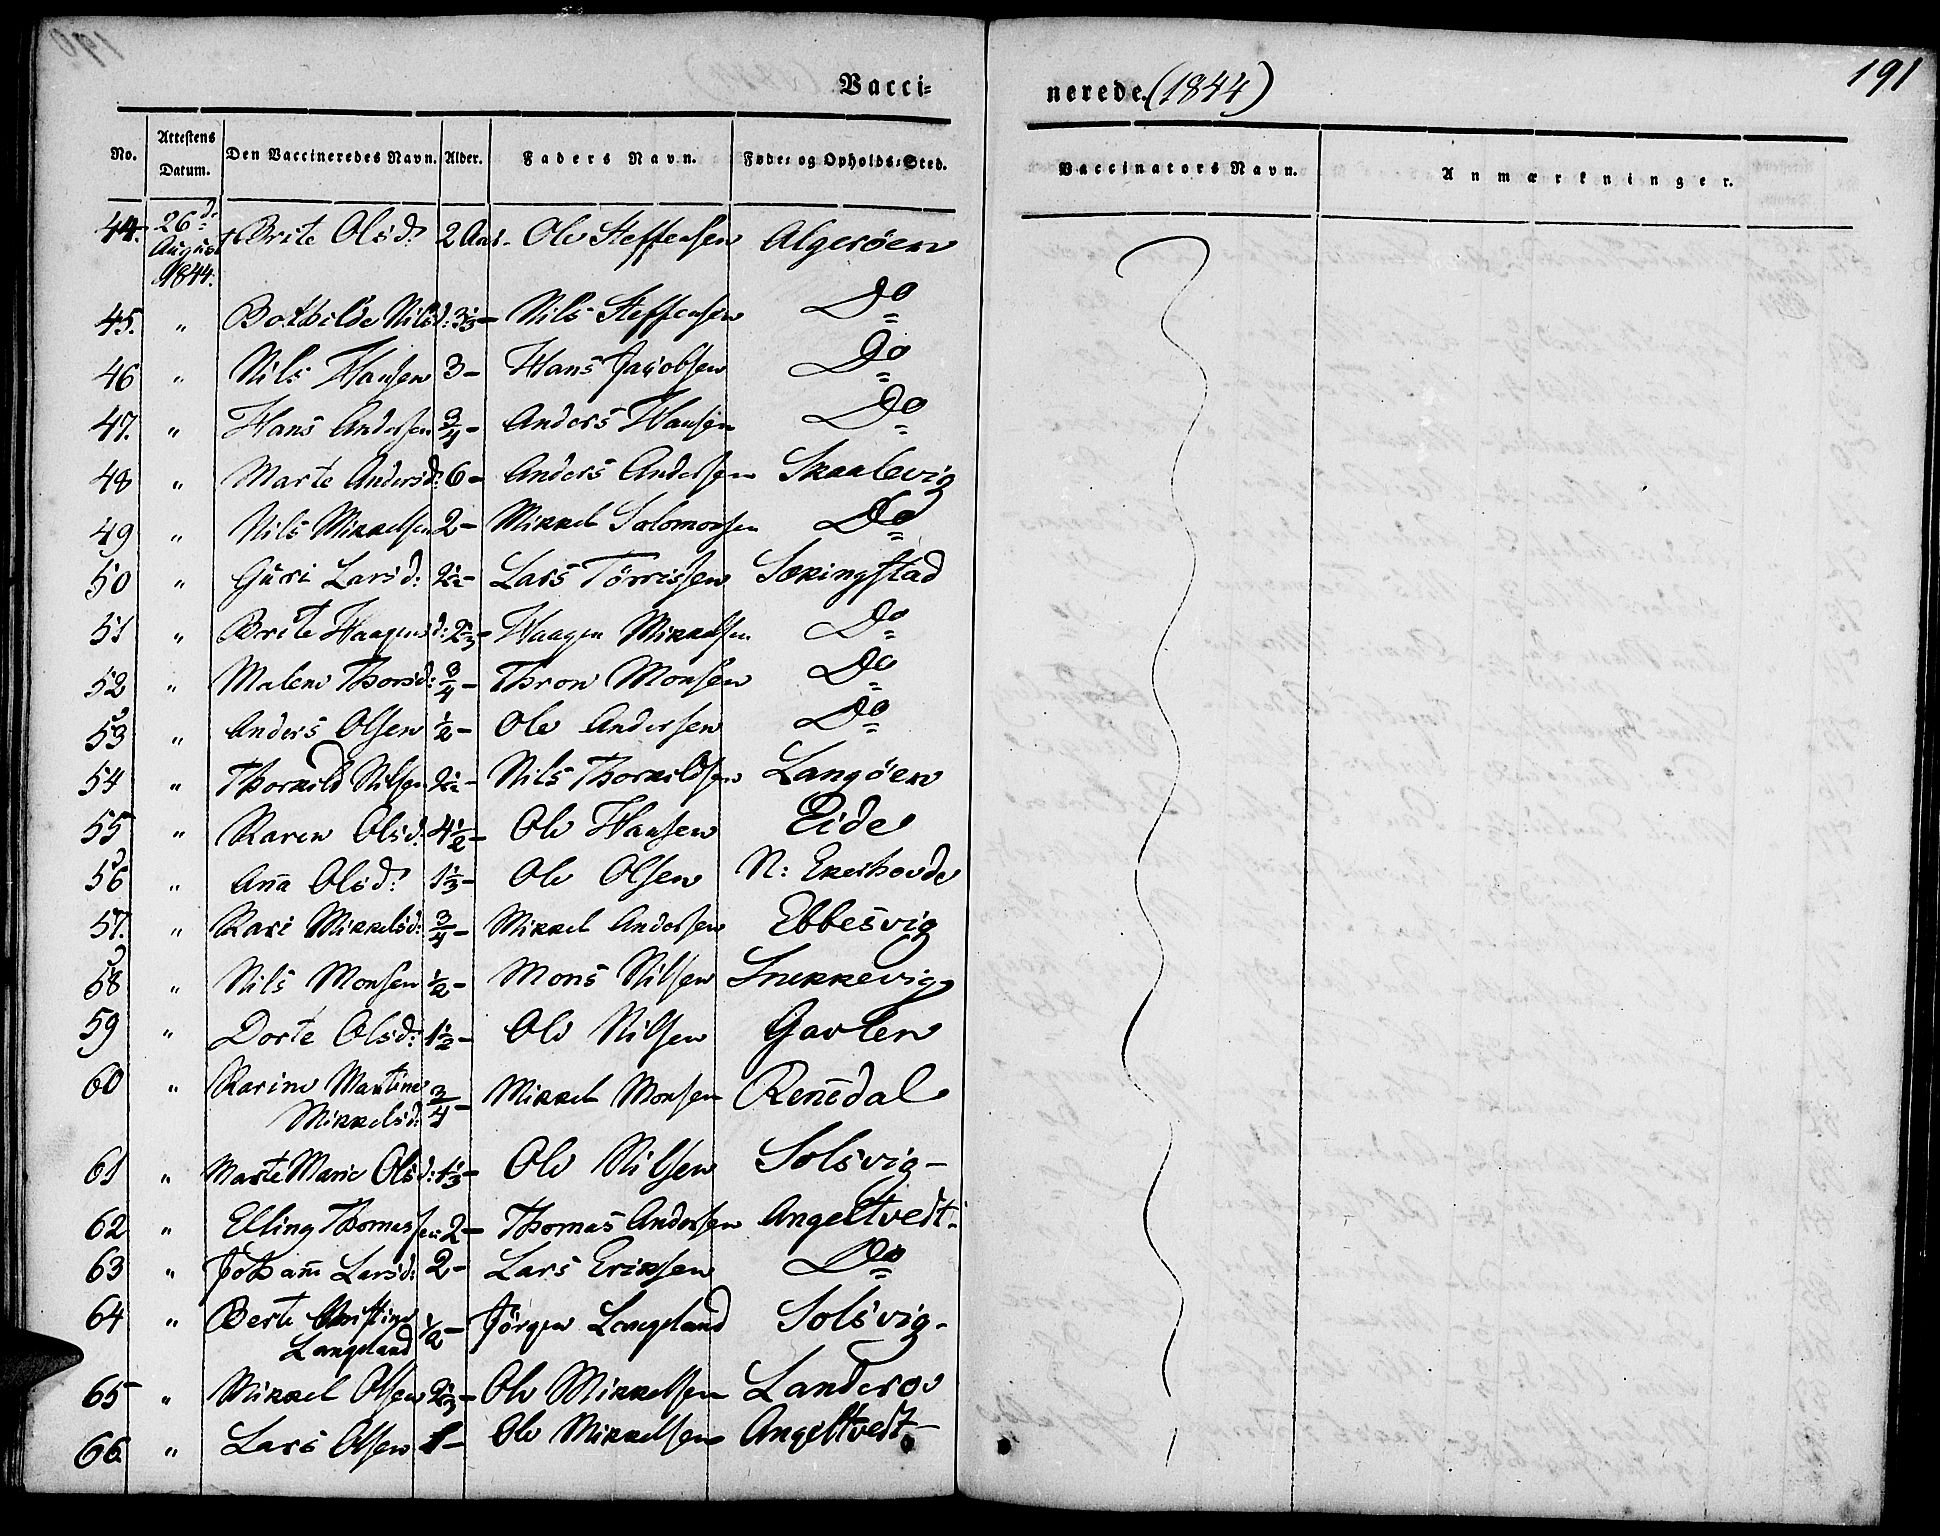 Vacci-
nerede. (1844)
191
No. Attestens Datum. Den Vaccineredes Navn. Alder. Faders Navn. Føde- og Opholds-Sted. Vaccinators Navn. Anmærkninger.
44. 26d: August 1844. Brite Olsd: 2 Aar- Ole Steffensen Algerøen
45. " Bothilde Nilsd: 3⅓- Nils Steffensen Do
46 " Nils Hansen 3- Hans Jacobsen Do
47. " Hans Andersen ¾- Anders Hansen Do
48 " Marte Andersd: 6- Anders Andersen Skaalevig
49 " Nils Mikkelsen 2- Mikkel Salomonsen Do
50 " Guri Larsd: 2½- Lars Tørrissen Sækingstad
51 " Brite Haagensd: 2⅓- Haagen Mikkelsen Do
52 " Malene Thorsd: ¾- Thron Monsen Do
53 " Anders Olsen ½- Ole Andersen Do
54 " Thorkild Nilsen 2½- Nils Thorkildsen Langøen
55 " Karen Olsd: 4½- Ole Hansen Eide
56 " Aña Olsd: 1⅓- Ole Olsen N: Ekerhovde
57. " Kari Mikkelsd: ¾- Mikkel Andersen Ebbesvig
58 " Nils Monsen ½- Mons Nilsen Snekkevig
59 " Dorte Olsd: 1½- Ole Nilsen Gavlen
60 " Karine Martine
Mikkelsd: ¾- Mikkel Monsen Renedal
61 " Marte Marie Olsd: 1⅓- Ole Nilsen Solsvig-
62 " Elling Thomassen 2- Thomas Andersen Angeltvedt-
63 " Johañ Larsd: 2- Lars Eriksen Do
64 " Berte Christine
Langeland ½- Jørgen Langeland Solsvig-
65 " Mikkel Olsen 2⅓- Ole Mikkelsen Landeroe
66. " Lars Olsen 1- Ole Mikkelsen Angeltvedt-